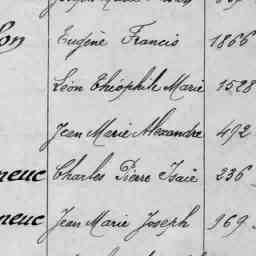 lon Eugène Francis 1866
Léon Théophile Marie 1528
Jean Marie Alexandre 492
neuc Charles Pierre Isaïe 236
neuc Jean Marie Joseph 969